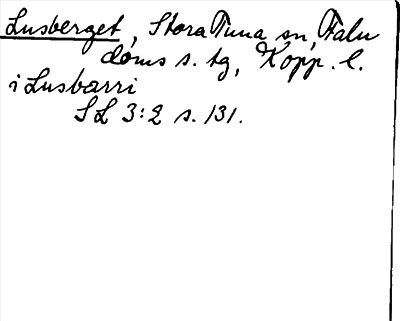 Lusberget, Stora Tuna sn, Falu
doms s. tg, Kopp. l.
i Lusbarri
SL 3:2 s. 131.